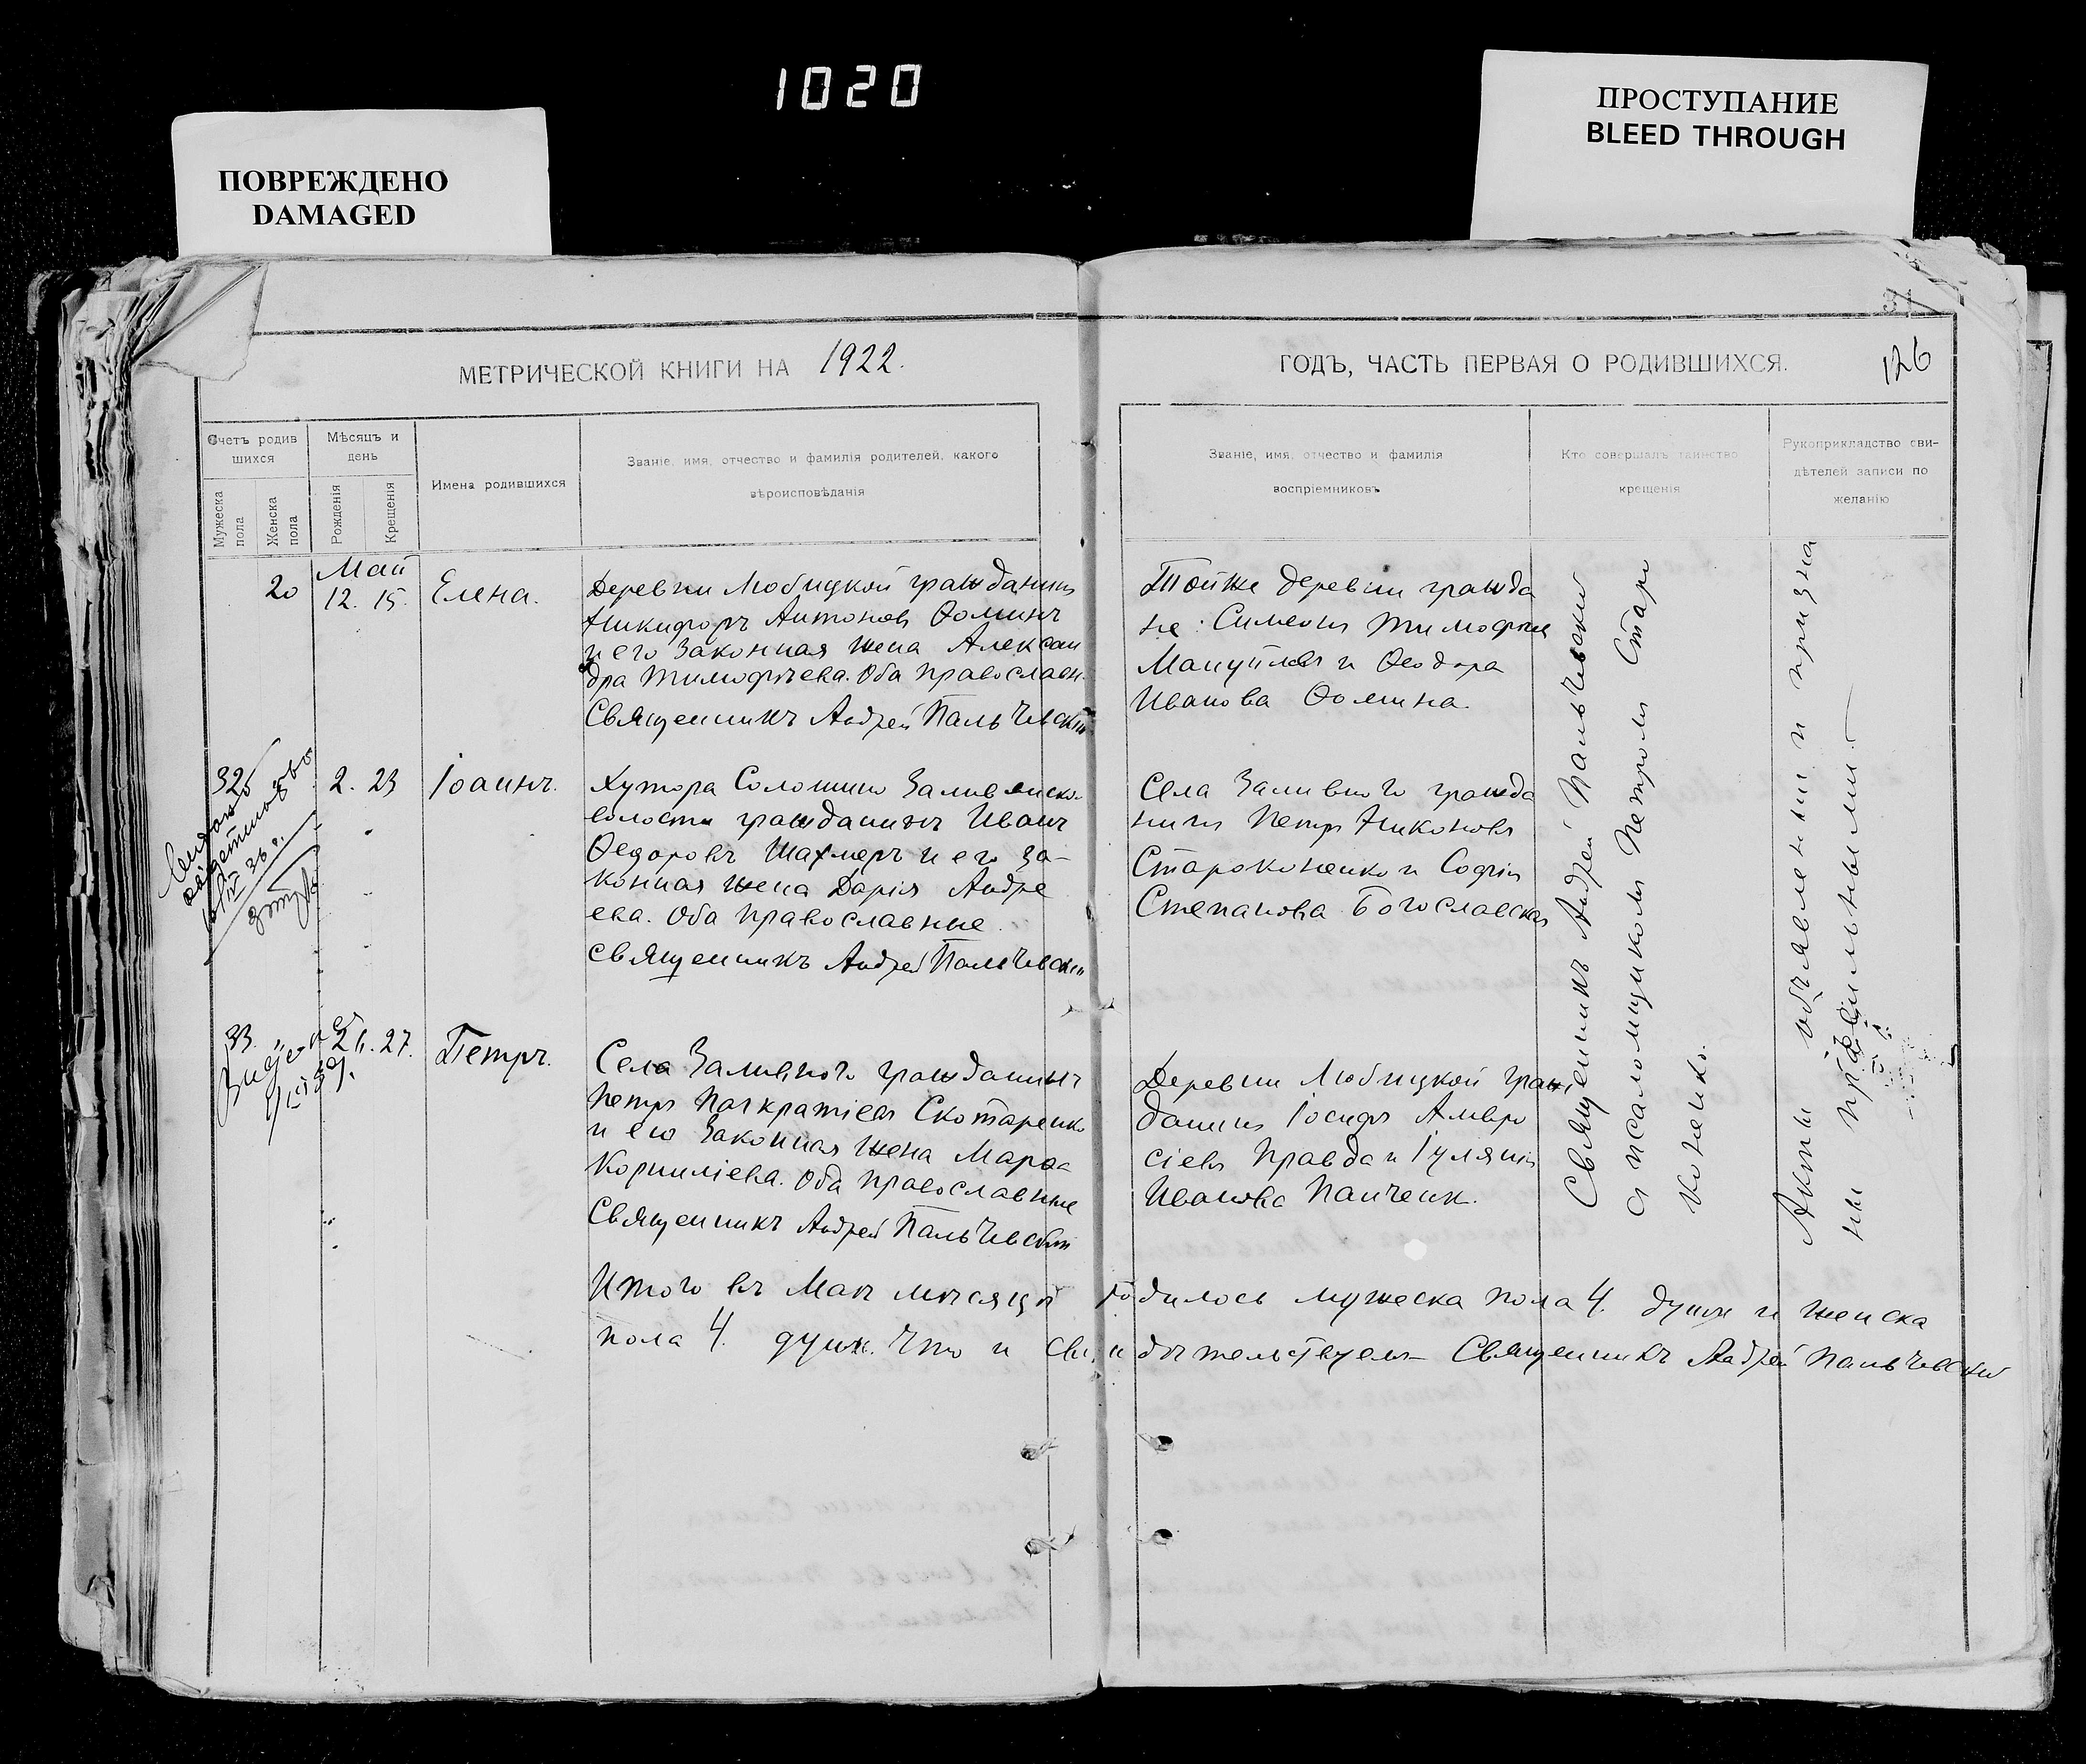 1020
ПОВРЕЖДЕНО
DAMAGED
ПРОСТУПАНИЕ
BLEED THROUGH
31
МЕТРИЧЕСКОЙ КНИГИ НА 1922.
ГОДЪ, ЧАСТЬ ПЕРВАЯ О РОДИВШИХСЯ.
126
Счетъ родив
шихся
Мужеска
пола
Женска
пола
Мѣсяцъ и
день
Рожденія
Крещенія
Имена родившихся
Званіе, имя, отчество и фамилія родителей, какого
вѣроисповѣданія
Званіе, имя, отчество и фамилія
воспріемниковъ
Кто совершалъ таинство
крещенія
Рукоприкладство сви-
дѣтелей записи по
желанію
20
Май
12. 15.
Елена.
Деревни Любицкой гражданинъ
Никифоръ Антоновъ Ѳоминъ
и его законная жена Алексан
дра Тимофѣева. Оба православн.
Священникъ Андрей Пальчевскій
Тойже деревни гражда
не: Симеонъ Тимофѣев
Мануйловъ и Ѳеодора
Иванова Ѳомина.
32
2. 23
Іоаннъ.
Хутора Солошино Заливянско.
волости гражданинъ Иванъ
Ѳедоровъ Шахмеръ и его за-
конная жена Дарія Андре
ева. Оба православные.
Священникъ Андрей Пальчевскій
Села Заливного гражда
нинъ Петръ Никоновъ
Староконенко и Софія
Степанова Богославская
33.
26. 27.
Петръ.
Села Заливного гражданинъ
Петръ Панкратіевъ Скотаренко
и его законная жена Марѳа
Корниліева. Оба православные
Священникъ Андрей Пальчевскій
Деревни Любицкой граж
данинъ Іосифъ Амвро
сіевъ Правда и Іуліанія
Иванова Панченк.
Священникъ Андрей Пальчевскій
съ псаломщикомъ Петромъ Старо
коненко.
Акты объявлены и призна
ны правильными.
Итого въ Маѣ мѣсяцѣ родилось мужеска пола 4. душ и женска
пола 4. душ. Что и свидѣтельствуемъ Священникъ Андрей Пальчевскій